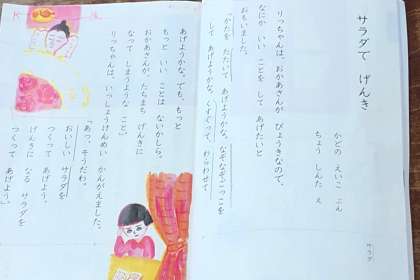 サラダで げんき
かどの えいこ ぶん
ちょう しんた え
りっちゃんは、おかあさんが びょうきなので、
なにか いい ことを して あげたいと
おもいました。
「かたを たたいて あげようかな。なぞなぞごっこを
して あげようかな。くすぐって わらわせて
あげようかな。でも、もっと
もっと いい ことは ないかしら。
おかあさんが、たちまち げんきに
なって しまうような こと。」
りっちゃんは、いっしょうけんめい かんがえました。
「あっ、そうだわ。
おいしい サラダを
つくって あげよう。
げんきに なる サラダを
つくって あげよう。」
サラダ